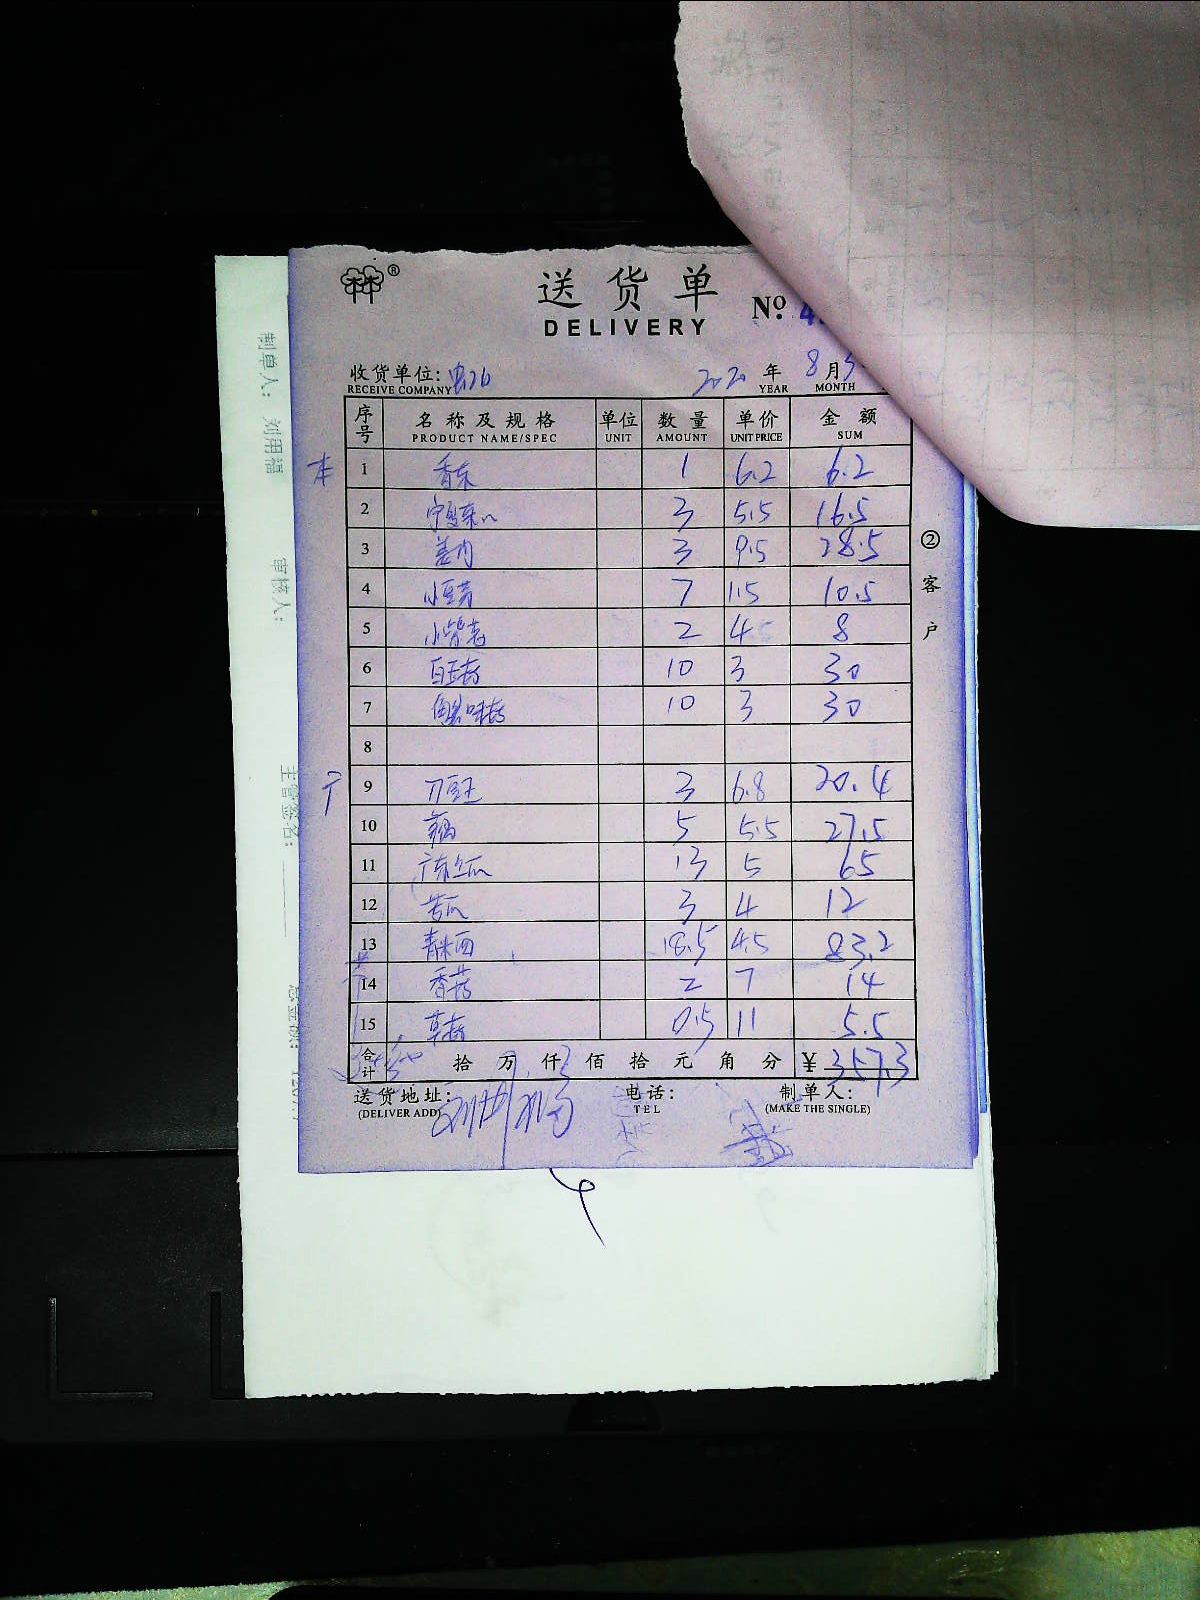 送货单
DELIVERY
Nº 4
收货单位: 2020 年 8 月
RECEIVE COMPANY YEAR MONTH
序号 名称及规格 单位 数量 单价 金额
PRODUCT NAME/SPEC UNIT AMOUNT UNIT PRICE SUM
本 1 香 1 6.2 6.2
2 3 5.5 16.5
3 姜肉 3 9.5 28.5
4 小豆芽 7 1.5 10.5
5 小 2 4 8
6 白玉菇 10 3 30
7 蟹味菇 10 3 30
8
9 刀豆 3 6.8 20.4
10 5 5.5 27.5
11 广东丝瓜 13 5 65
12 苦瓜 3 4 12
13 18.5 4.5 83.2
14 香菇 2 7 14
15 草菇 0.5 11 5.5
合计 拾 万 仟 佰 拾 元 角 分 ¥ 357.3
送货地址: 电话: 制单人:
(DELIVER ADD) TEL (MAKE THE SINGLE)
② 客户
制单人: 刘用福 审核人: 主管签名: